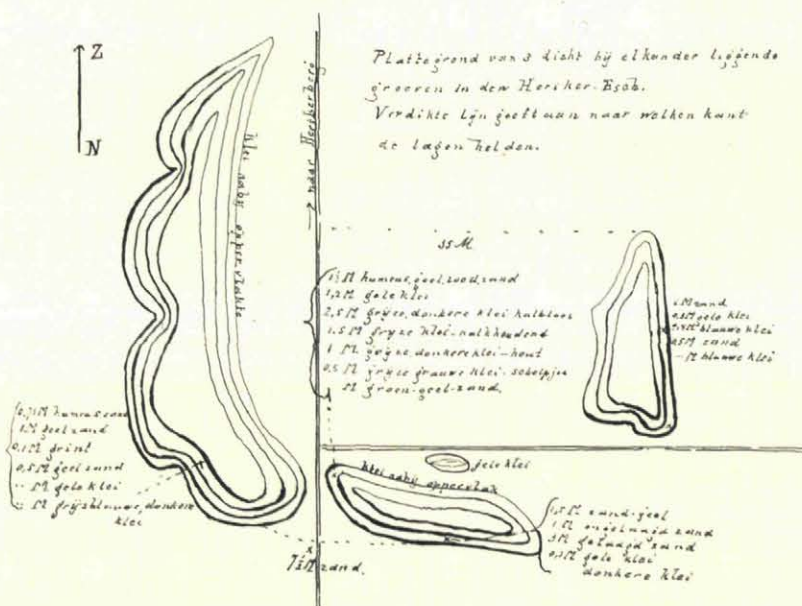 Z
N
Plattegrond van 3 dicht bij elkander liggende
groeven in den Heriker-Esch.
Verdikte lijn geeft aan naar welken kant
de lagen hellen.
klei naby oppervlakte
→ naar Herikerberg
35 M
1½ M humeus, geel, rood, zand
1,2 M gele klei
2,5 M gryze, donkere klei kalkloos
1.5 M gryze klei-kalkhoudend
1 M gryze, donkere klei-hout
0,5 M gryze grauwe klei-schelpjes
M groen-geel-zand.
1 M zand
gele klei
blauwe klei
0,5 M zand
- M blauwe klei
0,75 M humeus zand
1 M geel zand
0,1 M grint
0,5 M geel zand
.. M gele klei
.. M gryzblauwe, donkere
klei
gele klei
klei naby oppervlak
1,5 M zand-geel
1 M zand
gelaagd zand
gele klei
donkere klei
x
7½ M zand.